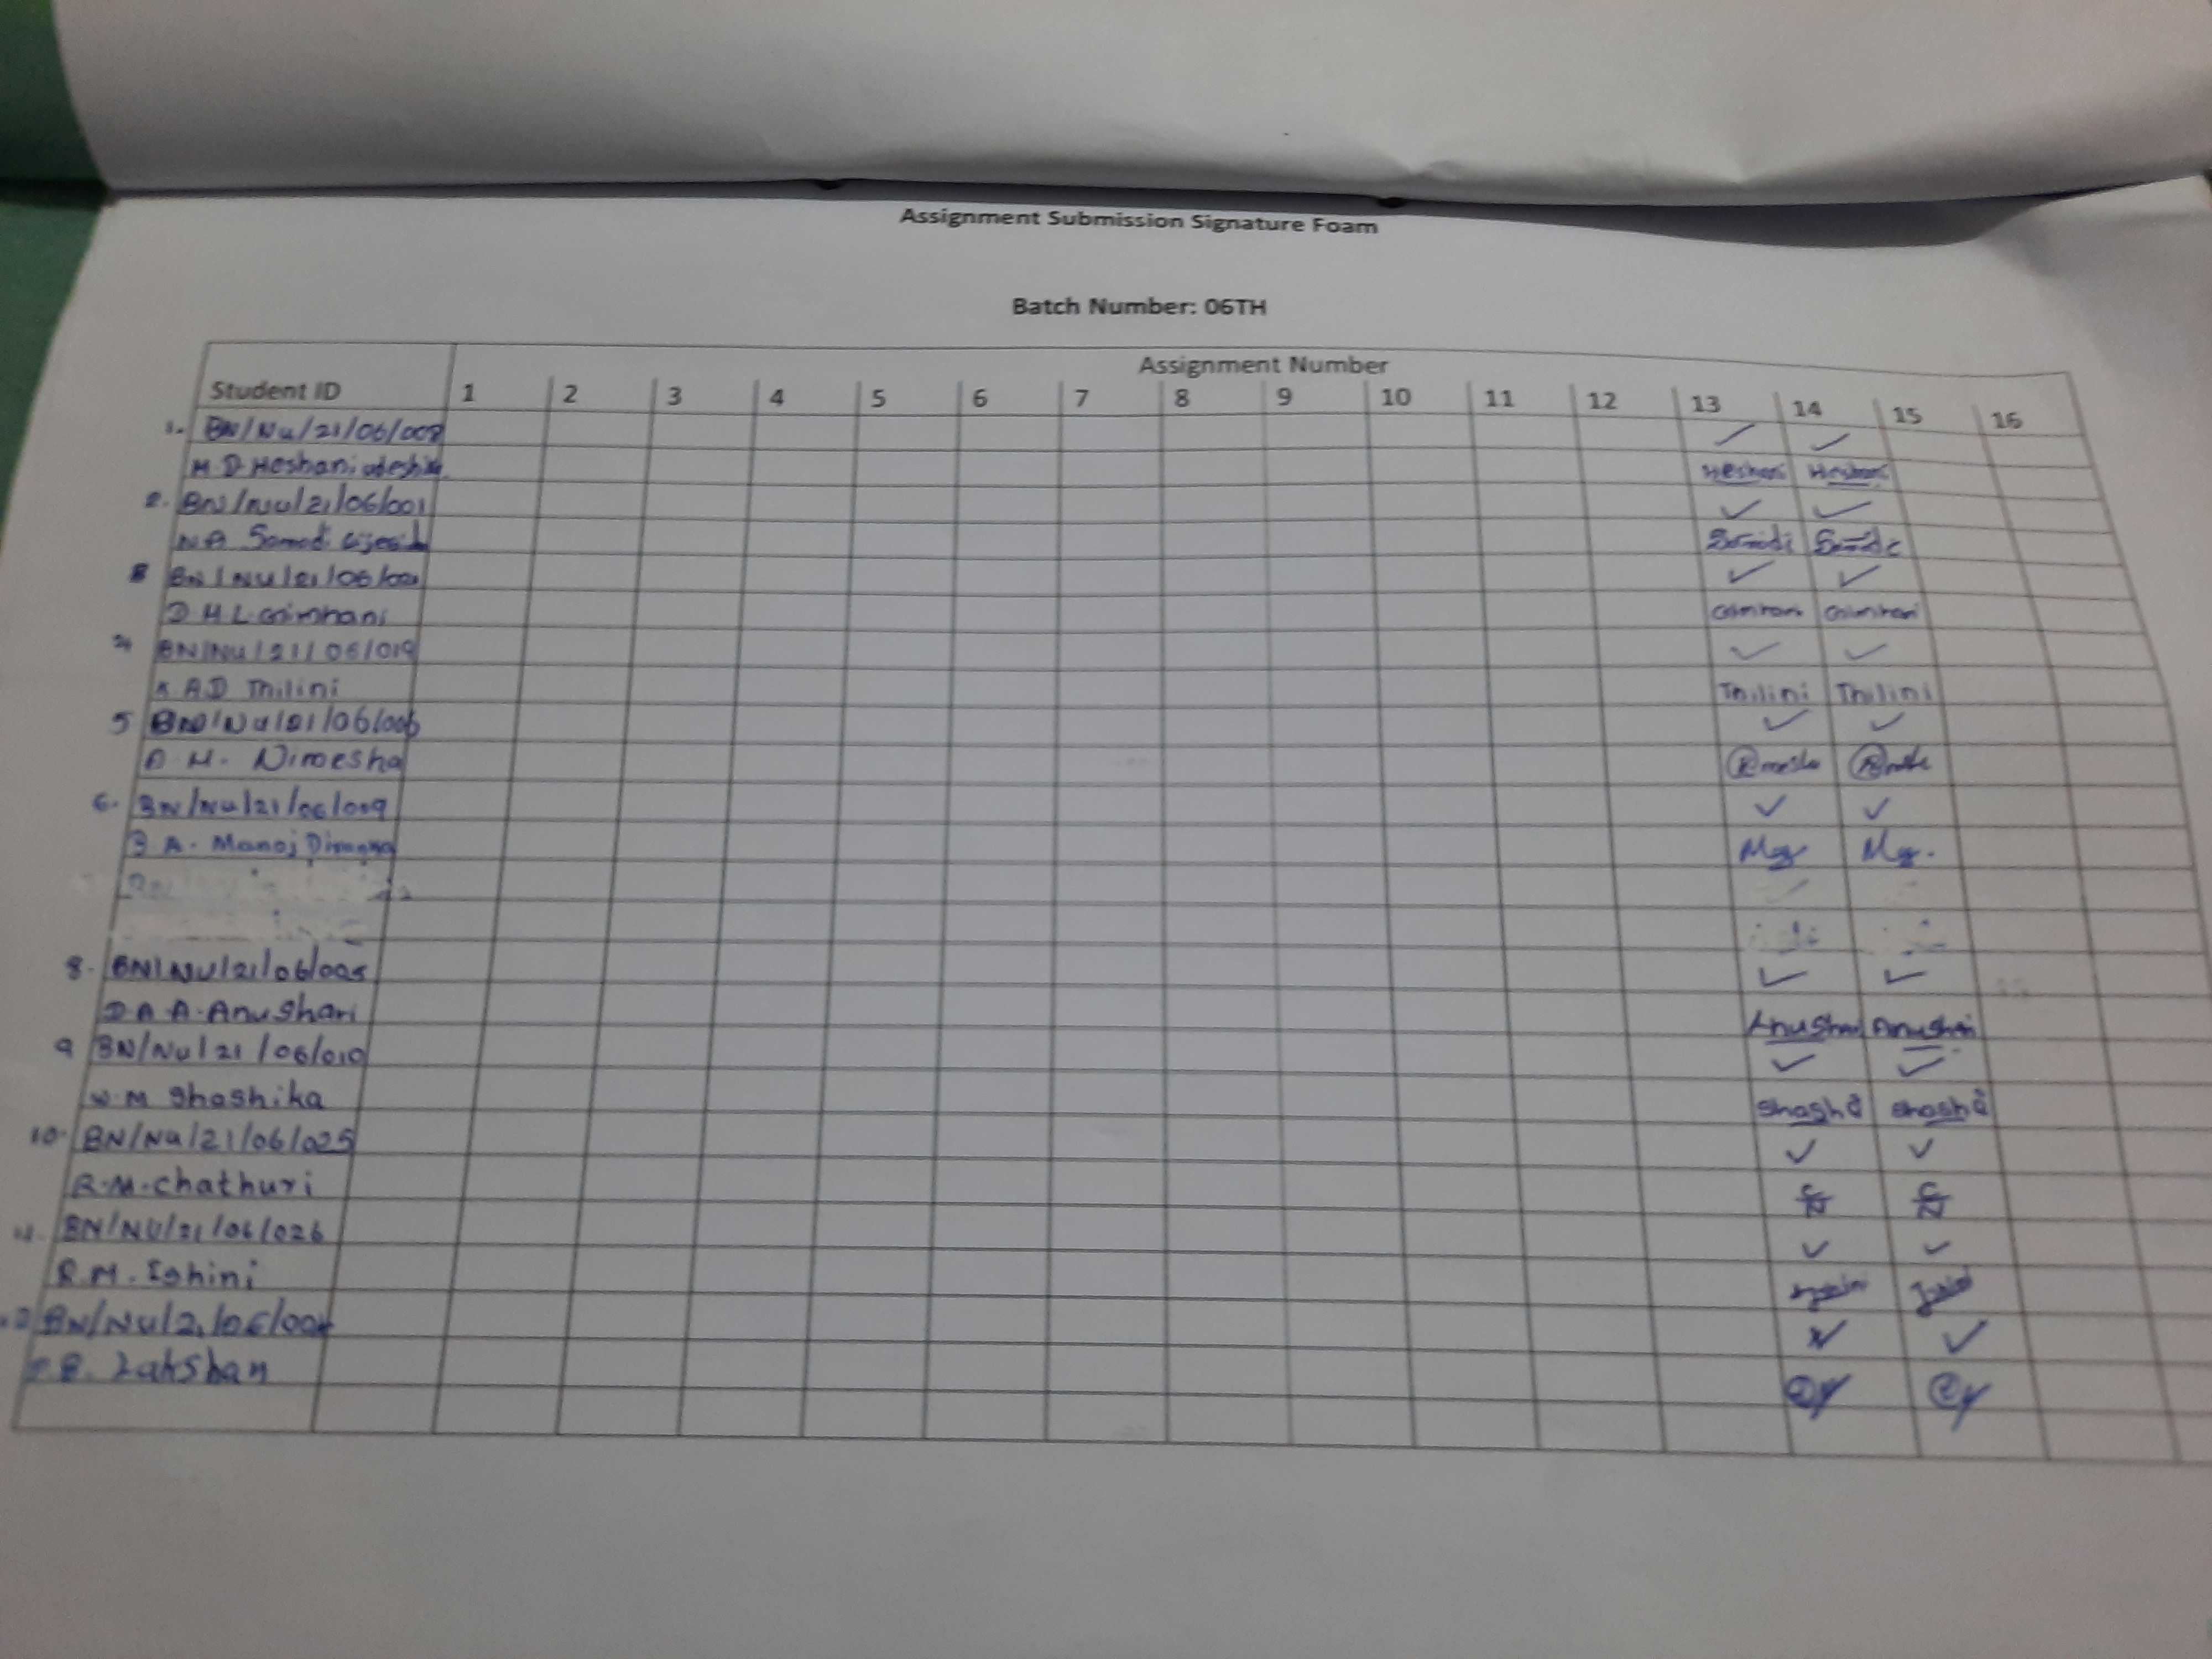 Assignment Submission Signature Foam
Batch Number: 06TH
Assignment Number
Student ID 1 2 3 4 5 6 7 8 9 10 11 12 13 14 15 16
1. BN/NU/21/06/008
M.D Heshani Heshani Heshani
2. BN/NU/21/06/001
N.A
BN/NU/21/06/021
D.H.L. Gimhani Gimhani Gimhani
BN/NU/21/06/019
K AD Thilini Thilini Thilini
5 BN/NU/21/06/006
D.M. Nimesha
6. BN/NU/21/06/009
B A. Manoj
BN
8. BN/NU/21/06/005
D.A.A. Anushari Anushari Anushari
9 BN/NU/21/06/010
W.M Shashika Shashi Shashi
10. BN/NU/21/06/025
R.M. Chathuri
11. BN/NU/21/06/026
R.M. Ishini
BN/NU/21/06/004
Lakshan